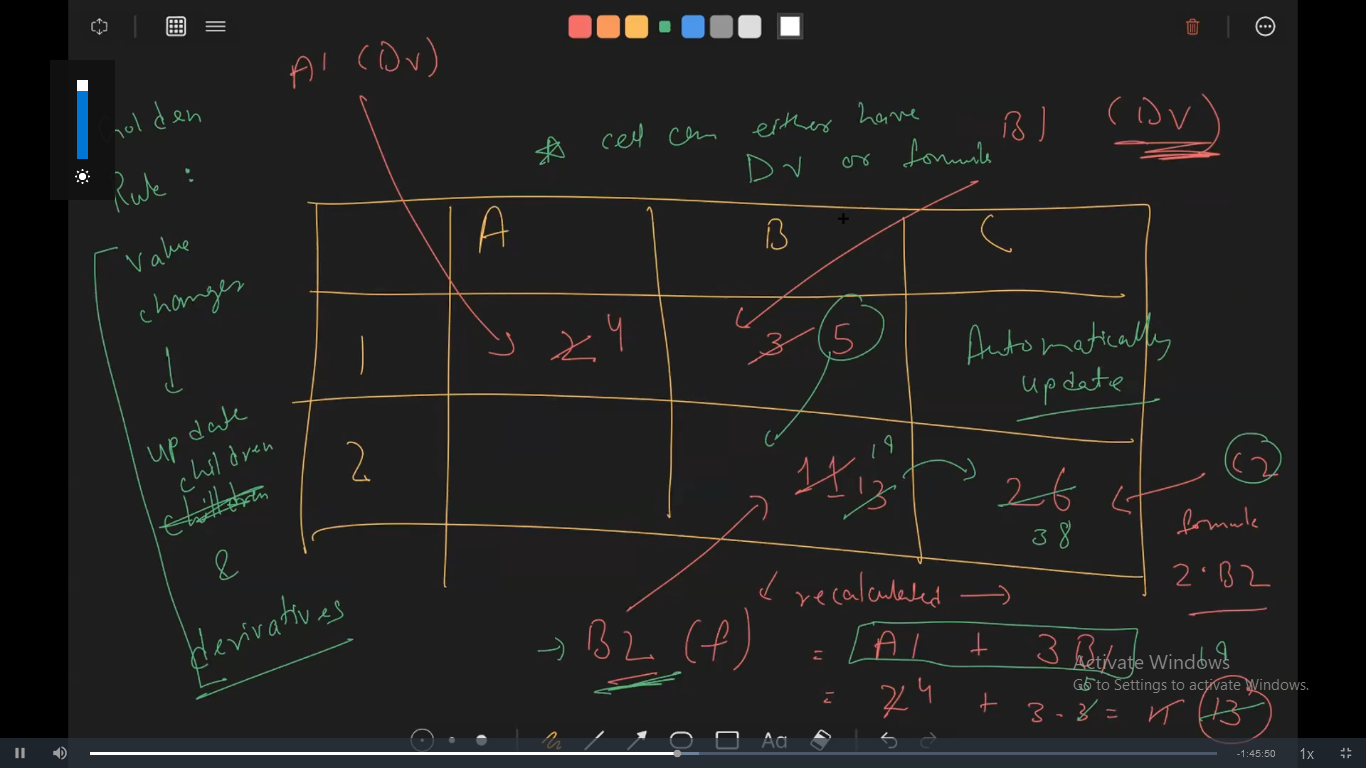 A1 (DV)
Golden
Rule :
value
changes
↓
update
children
children
&
derivatives
☆ cell can either have
DV or formula
B1 (DV)
A B C
1 2 4 3 5
Automatically
update
2 11 13 19 26
38
C2
formula
2·B2
← recalculated →
→ B2 (f) = A1 + 3B1
= 2 4 + 3·3 5 = 11 13 19
Activate Windows
Go to Settings to activate Windows.
Aa
-1:45:50 1x